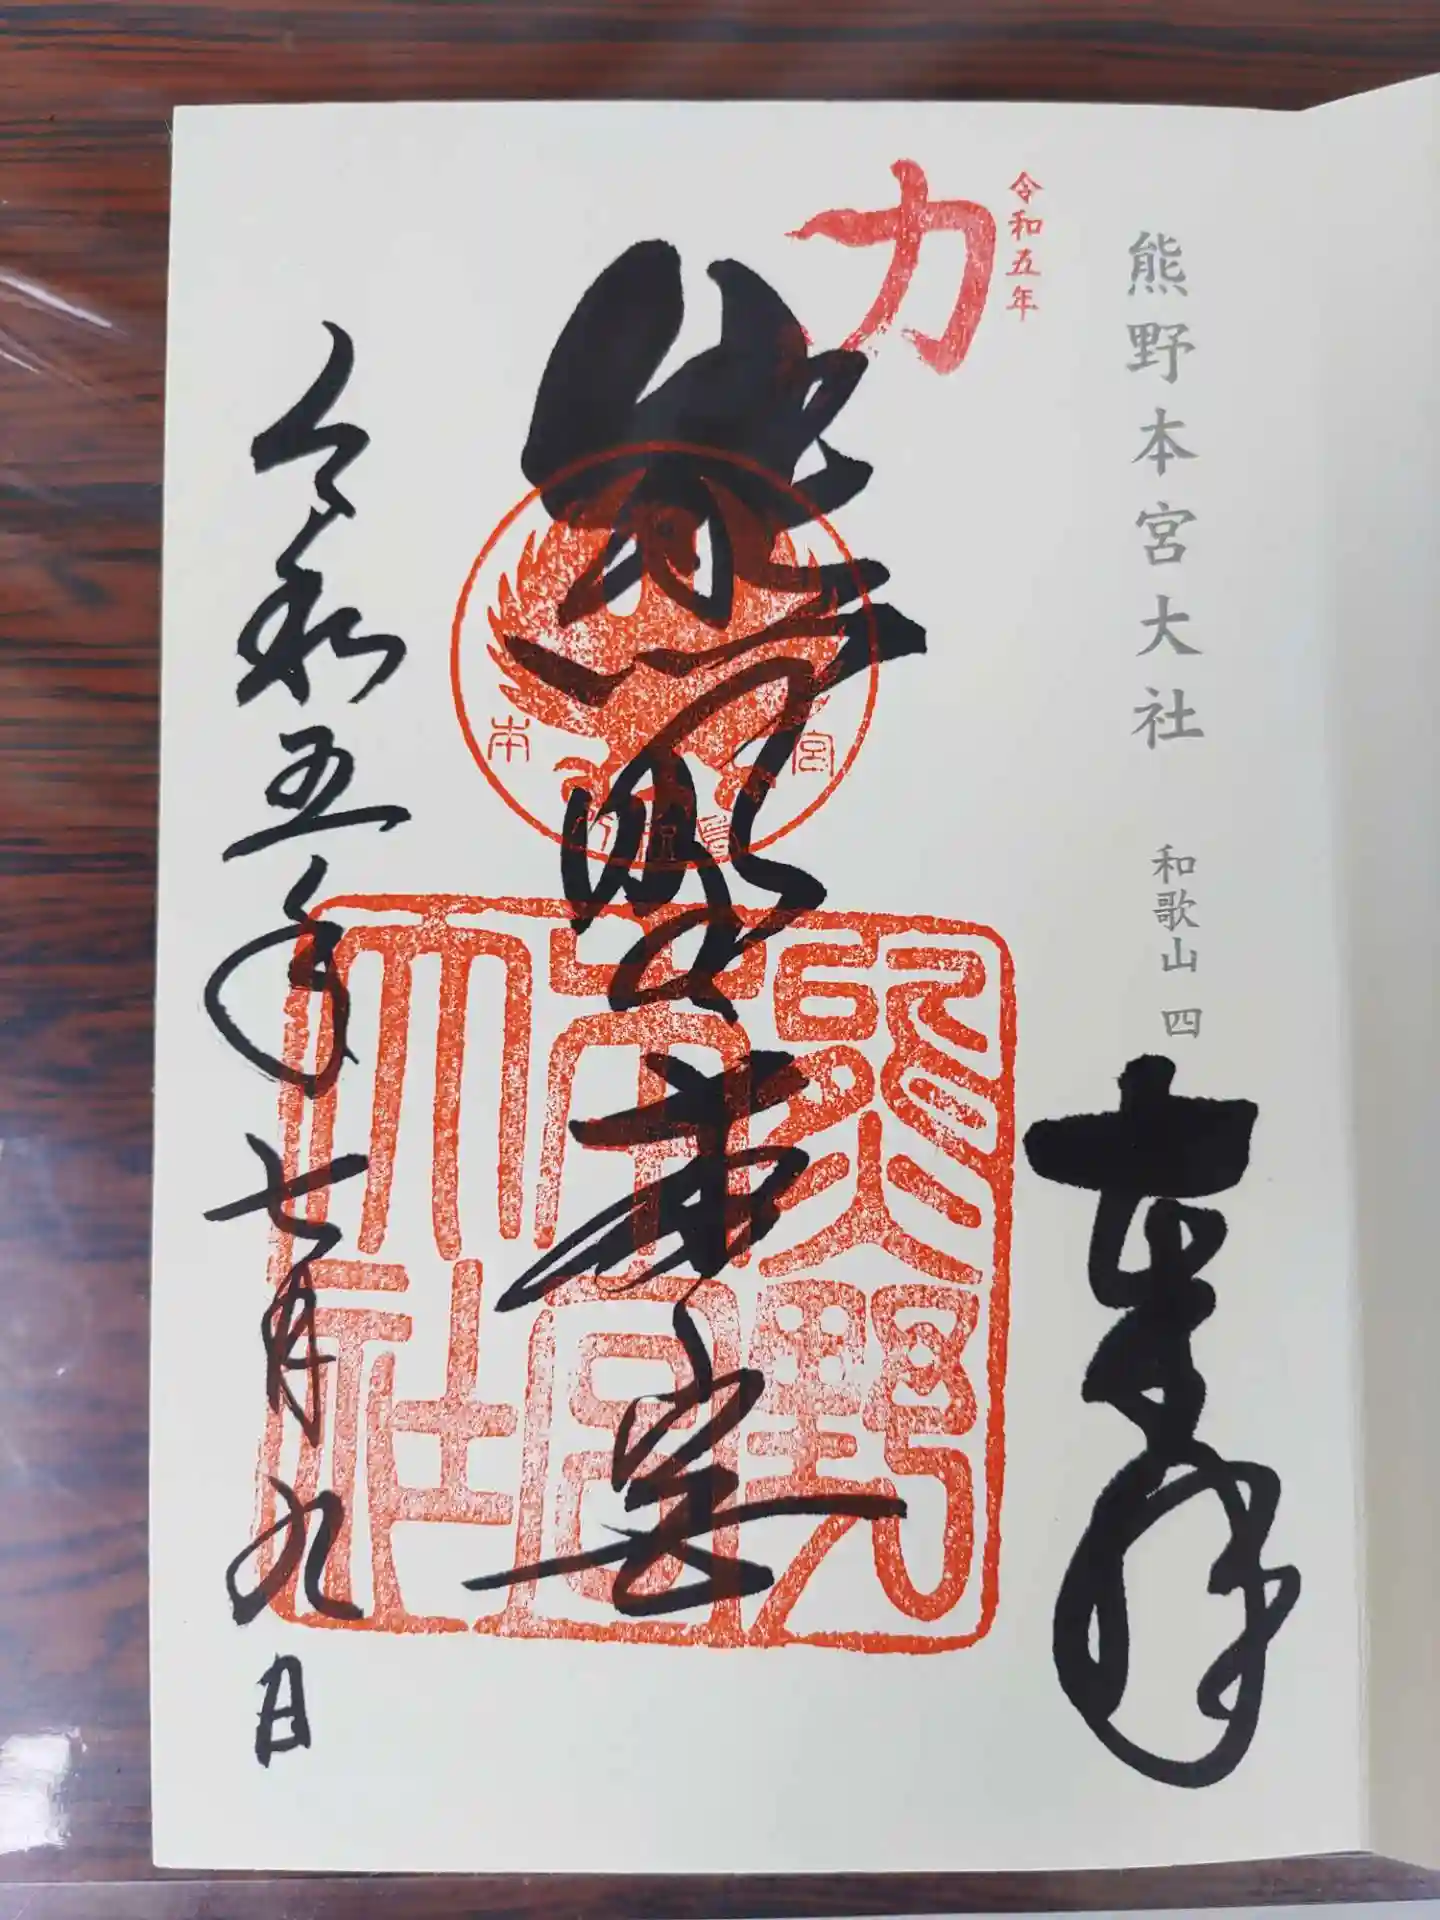 熊野本宮大社 和歌山 四
奉拝
令和五年
力
熊野本宮
本
宮
熊野
本宮
大社
令和五年七月九日